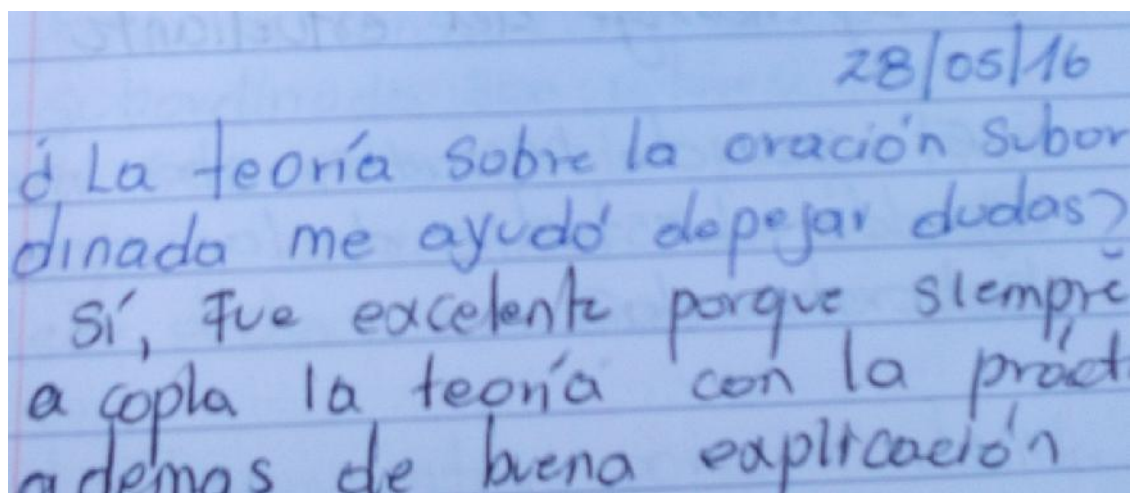 28/05/16
¿La teoría sobre la oración subor
dinada me ayudó depejar dudas?
Sí, Fue excelente porque siempre
a copla la teoría con la práct
ademas de buena explicación